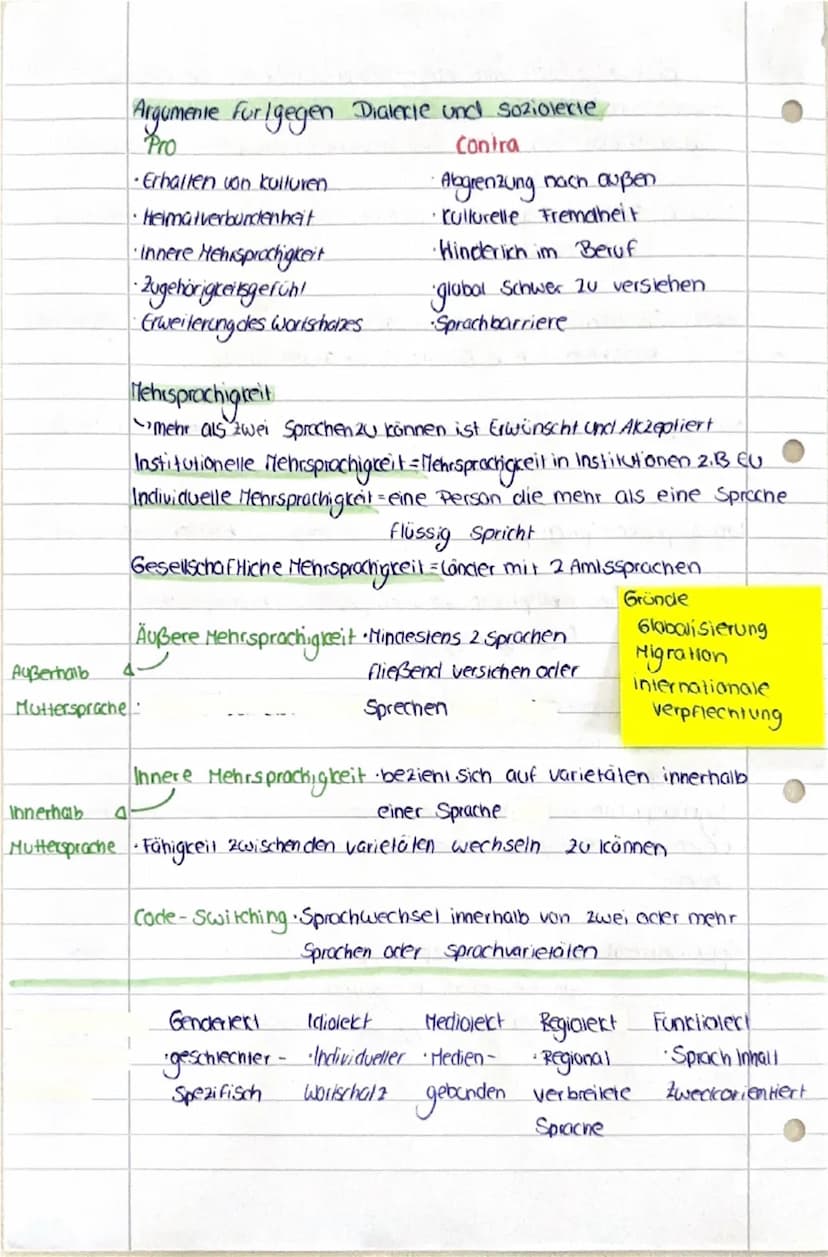 Argumente für/gegen Dialekte und Soziolekte
Pro Contra
· Erhalten von kulturen · Abgrenzung nach außen
· Heimatverbundenheit · kulturelle Fremdheit
· Innere Mehrsprachigkeit · Hinderlich im Beruf
· Zugehörigkeitsgefühl · global Schwer zu verstehen
· Erweiterung des Wortschatzes · Sprachbarriere
Mehrsprachigkeit
↳ mehr als zwei Sprachen zu können ist Erwünscht und Akzeptiert
Institutionelle Mehrsprachigkeit = Mehrsprachigkeit in Institutionen z.B EU
Individuelle Mehrsprachigkeit = eine Person die mehr als eine Sprache
flüssig spricht
Gesellschaftliche Mehrsprachigkeit = Länder mit 2 Amtssprachen
Gründe
Globalisierung
Migration
internationale
verpflechtung
Äußere Mehrsprachigkeit · Mindestens 2 Sprachen
Außerhalb fließend verstehen oder
Muttersprache: Sprechen
Innere Mehrsprachigkeit · bezieht sich auf varietäten innerhalb
Innerhalb einer Sprache
Muttersprache · Fähigkeit zwischen den varietäten wechseln zu können
Code-Switching · Sprachwechsel innerhalb von zwei oder mehr
Sprachen oder sprachvarietäten
Genderlekt Idiolekt Mediolekt Regiolekt Funktiolekt
· geschlechter- · Individueller · Medien- · Regional · Sprach Inhalt
Spezifisch Wortschatz gebunden verbreitete Zweckorientiert
Sprache